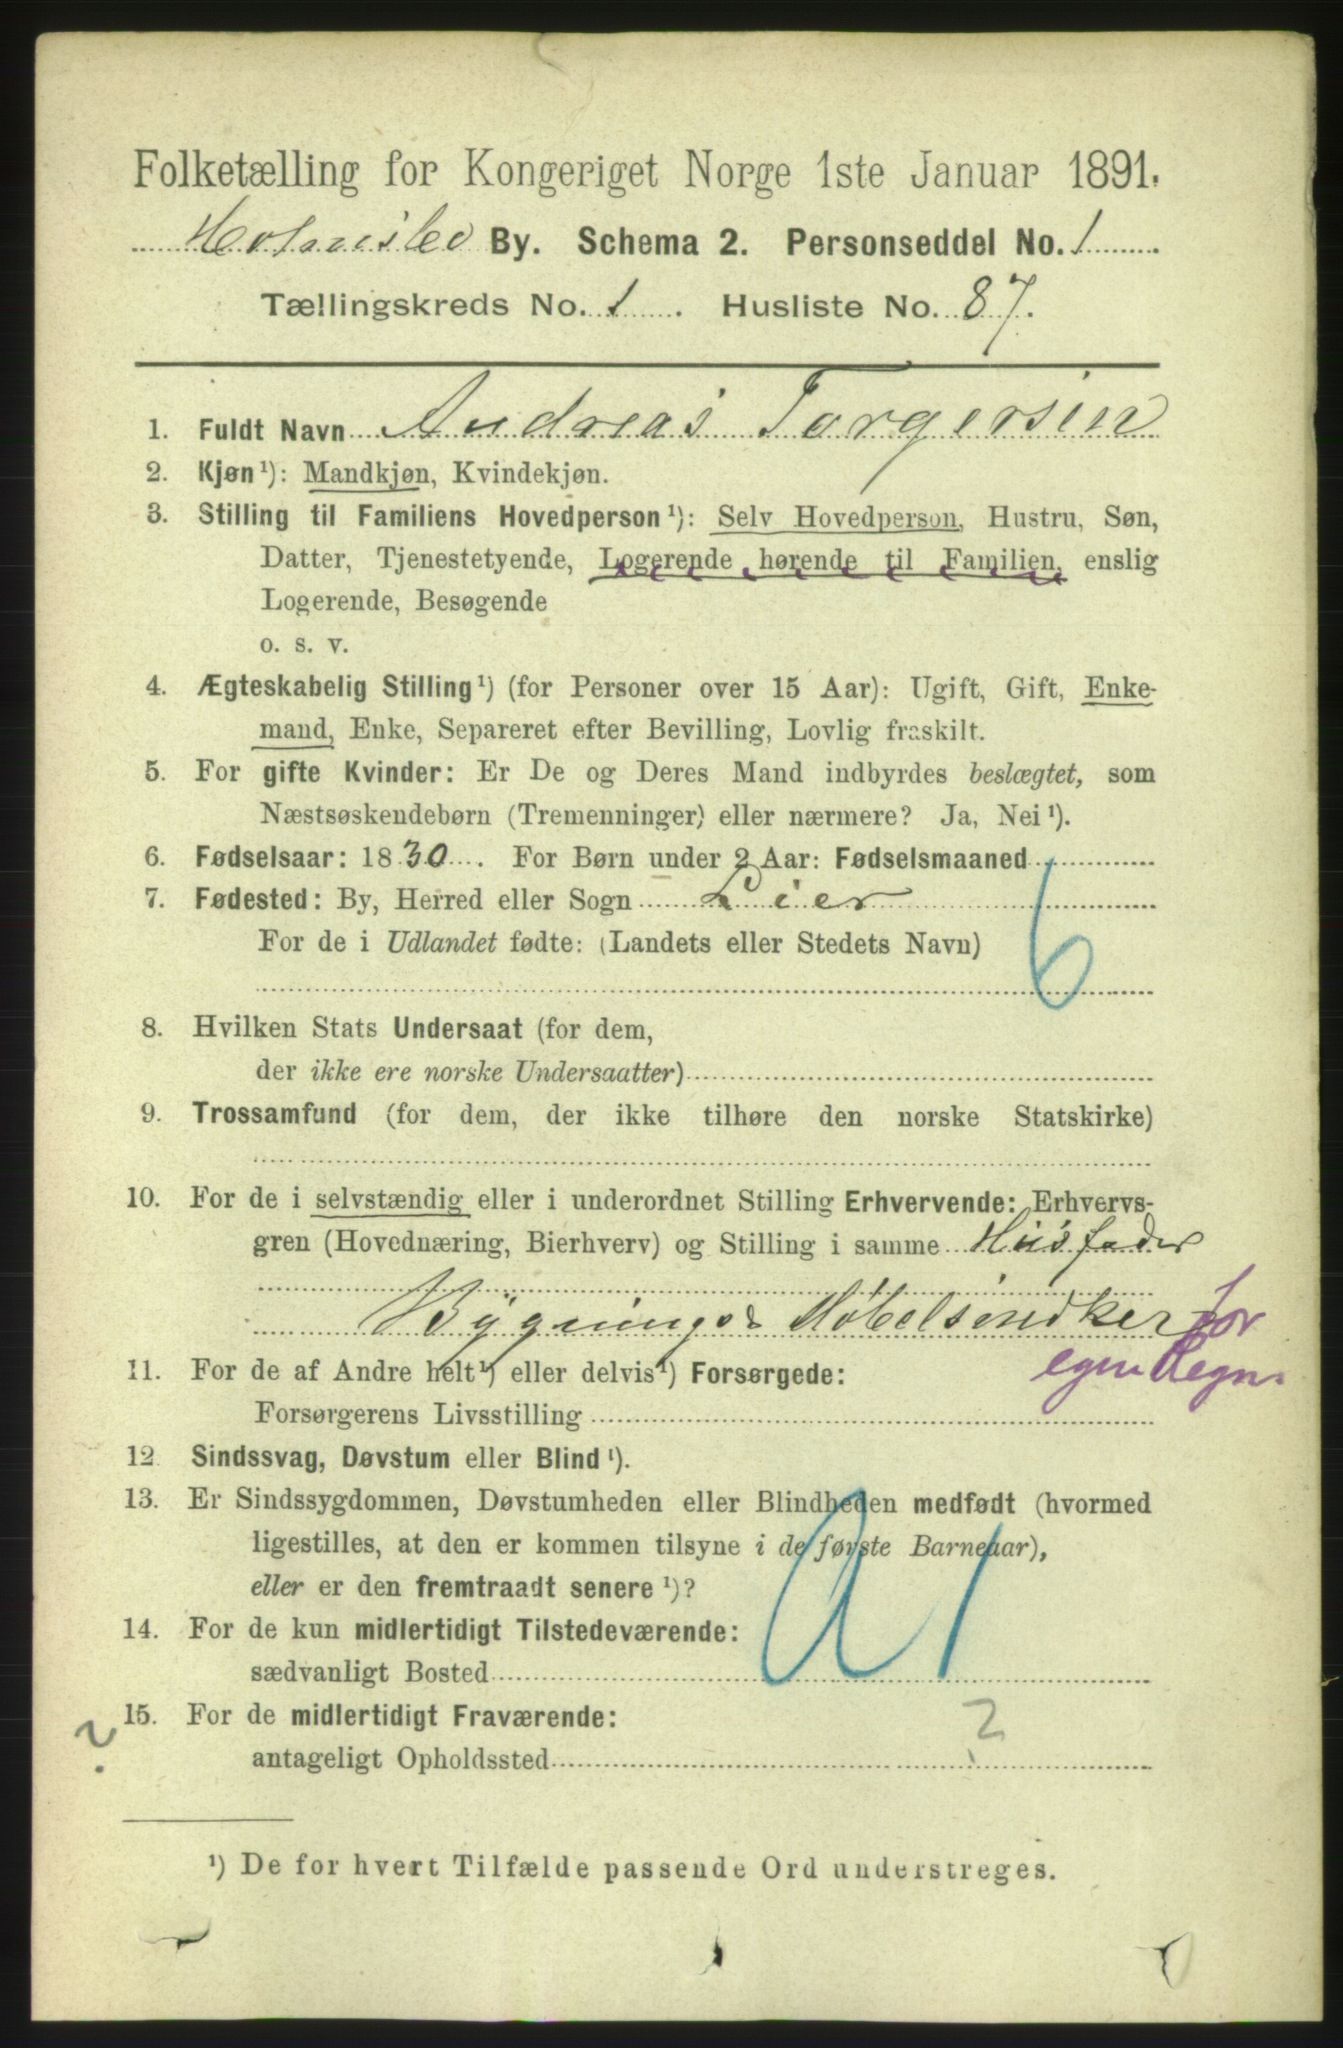 Folketælling for Kongeriget Norge 1ste Januar 1891.
Holmsbo By. Schema 2. Personseddel No. 1
Tællingskreds No. 1. Husliste No. 87.
1. Fuldt Navn Andreas Torgersen
2. Kjøn ¹): Mandkjøn, Kvindekjøn.
3. Stilling til Familiens Hovedperson ¹): Selv Hovedperson, Hustru, Søn,
Datter, Tjenestetyende, Logerende hørende til Familien, enslig
Logerende, Besøgende
o. s. v.
4. Ægteskabelig Stilling ¹) (for Personer over 15 Aar): Ugift, Gift, Enke-
mand, Enke, Separeret efter Bevilling, Lovlig fraskilt.
5. For gifte Kvinder: Er De og Deres Mand indbyrdes beslægtet, som
Næstsøskendebørn (Tremenninger) eller nærmere? Ja, Nei ¹).
6. Fødselsaar: 1830. For Børn under 2 Aar: Fødselsmaaned
7. Fødested: By, Herred eller Sogn Lier
6
For de i Udlandet fødte: (Landets eller Stedets Navn)
8. Hvilken Stats Undersaat (for dem,
der ikke ere norske Undersaatter)
9. Trossamfund (for dem, der ikke tilhøre den norske Statskirke)
10. For de i selvstændig eller i underordnet Stilling Erhvervende: Erhvervs-
gren (Hovednæring, Bierhverv) og Stilling i samme Husfader
Bygnings & Møbelsnedker for
egen Regn.
11. For de af Andre helt ¹) eller delvis ¹) Forsørgede:
Forsørgerens Livsstilling
12. Sindssvag, Døvstum eller Blind ¹).
13. Er Sindssygdommen, Døvstumheden eller Blindheden medfødt (hvormed
ligestilles, at den er kommen tilsyne i de første Barneaar),
eller er den fremtraadt senere ¹)?
a 1
14. For de kun midlertidigt Tilstedeværende:
sædvanligt Bosted
? 15. For de midlertidigt Fraværende:
antageligt Opholdssted ?
¹) De for hvert Tilfælde passende Ord understreges.